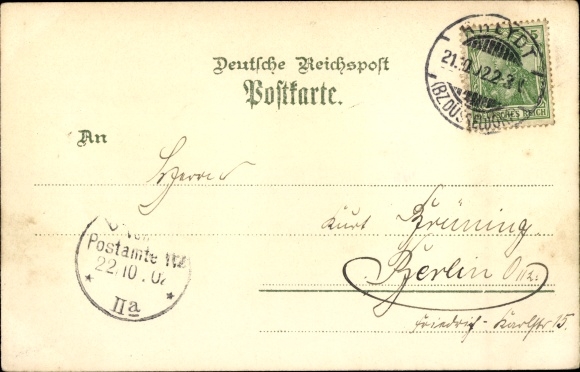 RHEYDT
21.10.02.2-3N
(BZ.DÜSSELDORF)
DEUTSCHES REICH
Deutsche Reichspost
Postkarte.
An
Herrn
Kurt Brüning
Berlin
Friedrich-Karlstr 15.
Postamte
22/10.02
* IIa *